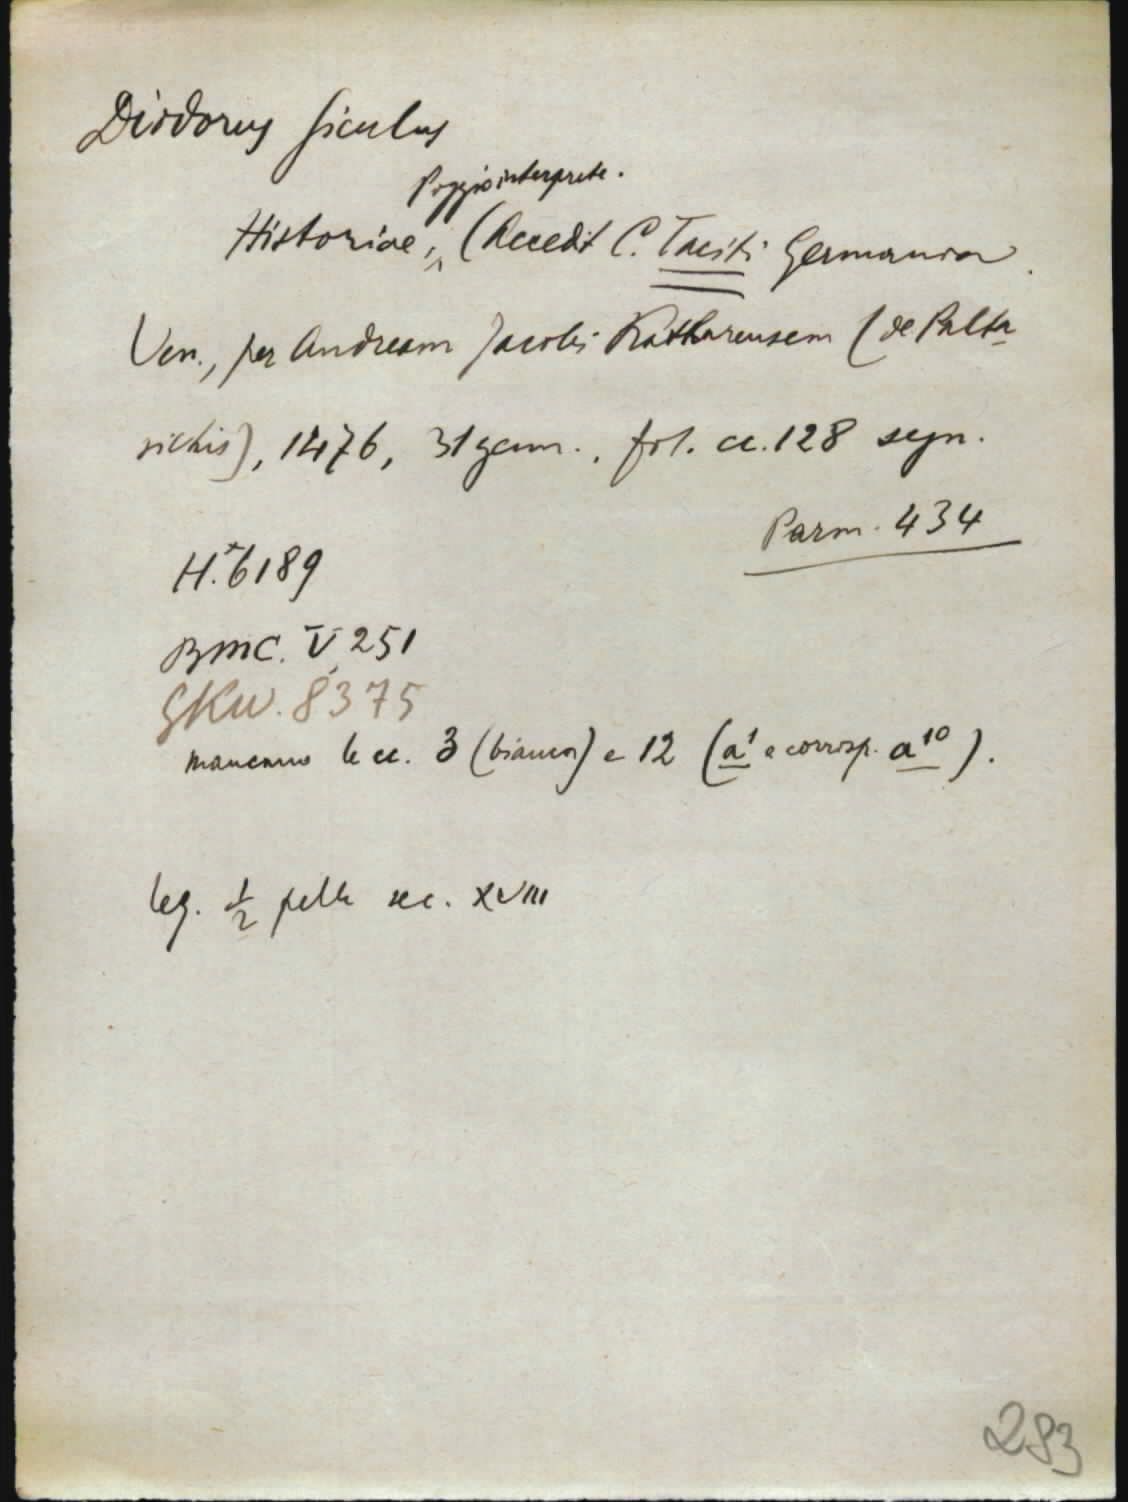 Diodorus Siculus
Poggio interprete.
Historiae, (Accedit C. Taciti Germania.
Ven., per Andream Jacobi Katharensem (de Palta-
sichis), 1476, 31 genn., fol. cc. 128 segn.
Parm. 434
H.* 6189
BMC. V, 251
GKW. 8375
mancano le cc. 3 (bianca) e 12 (a¹ e corrisp. a¹⁰).
leg. ½ pelle sec. XVIII
293